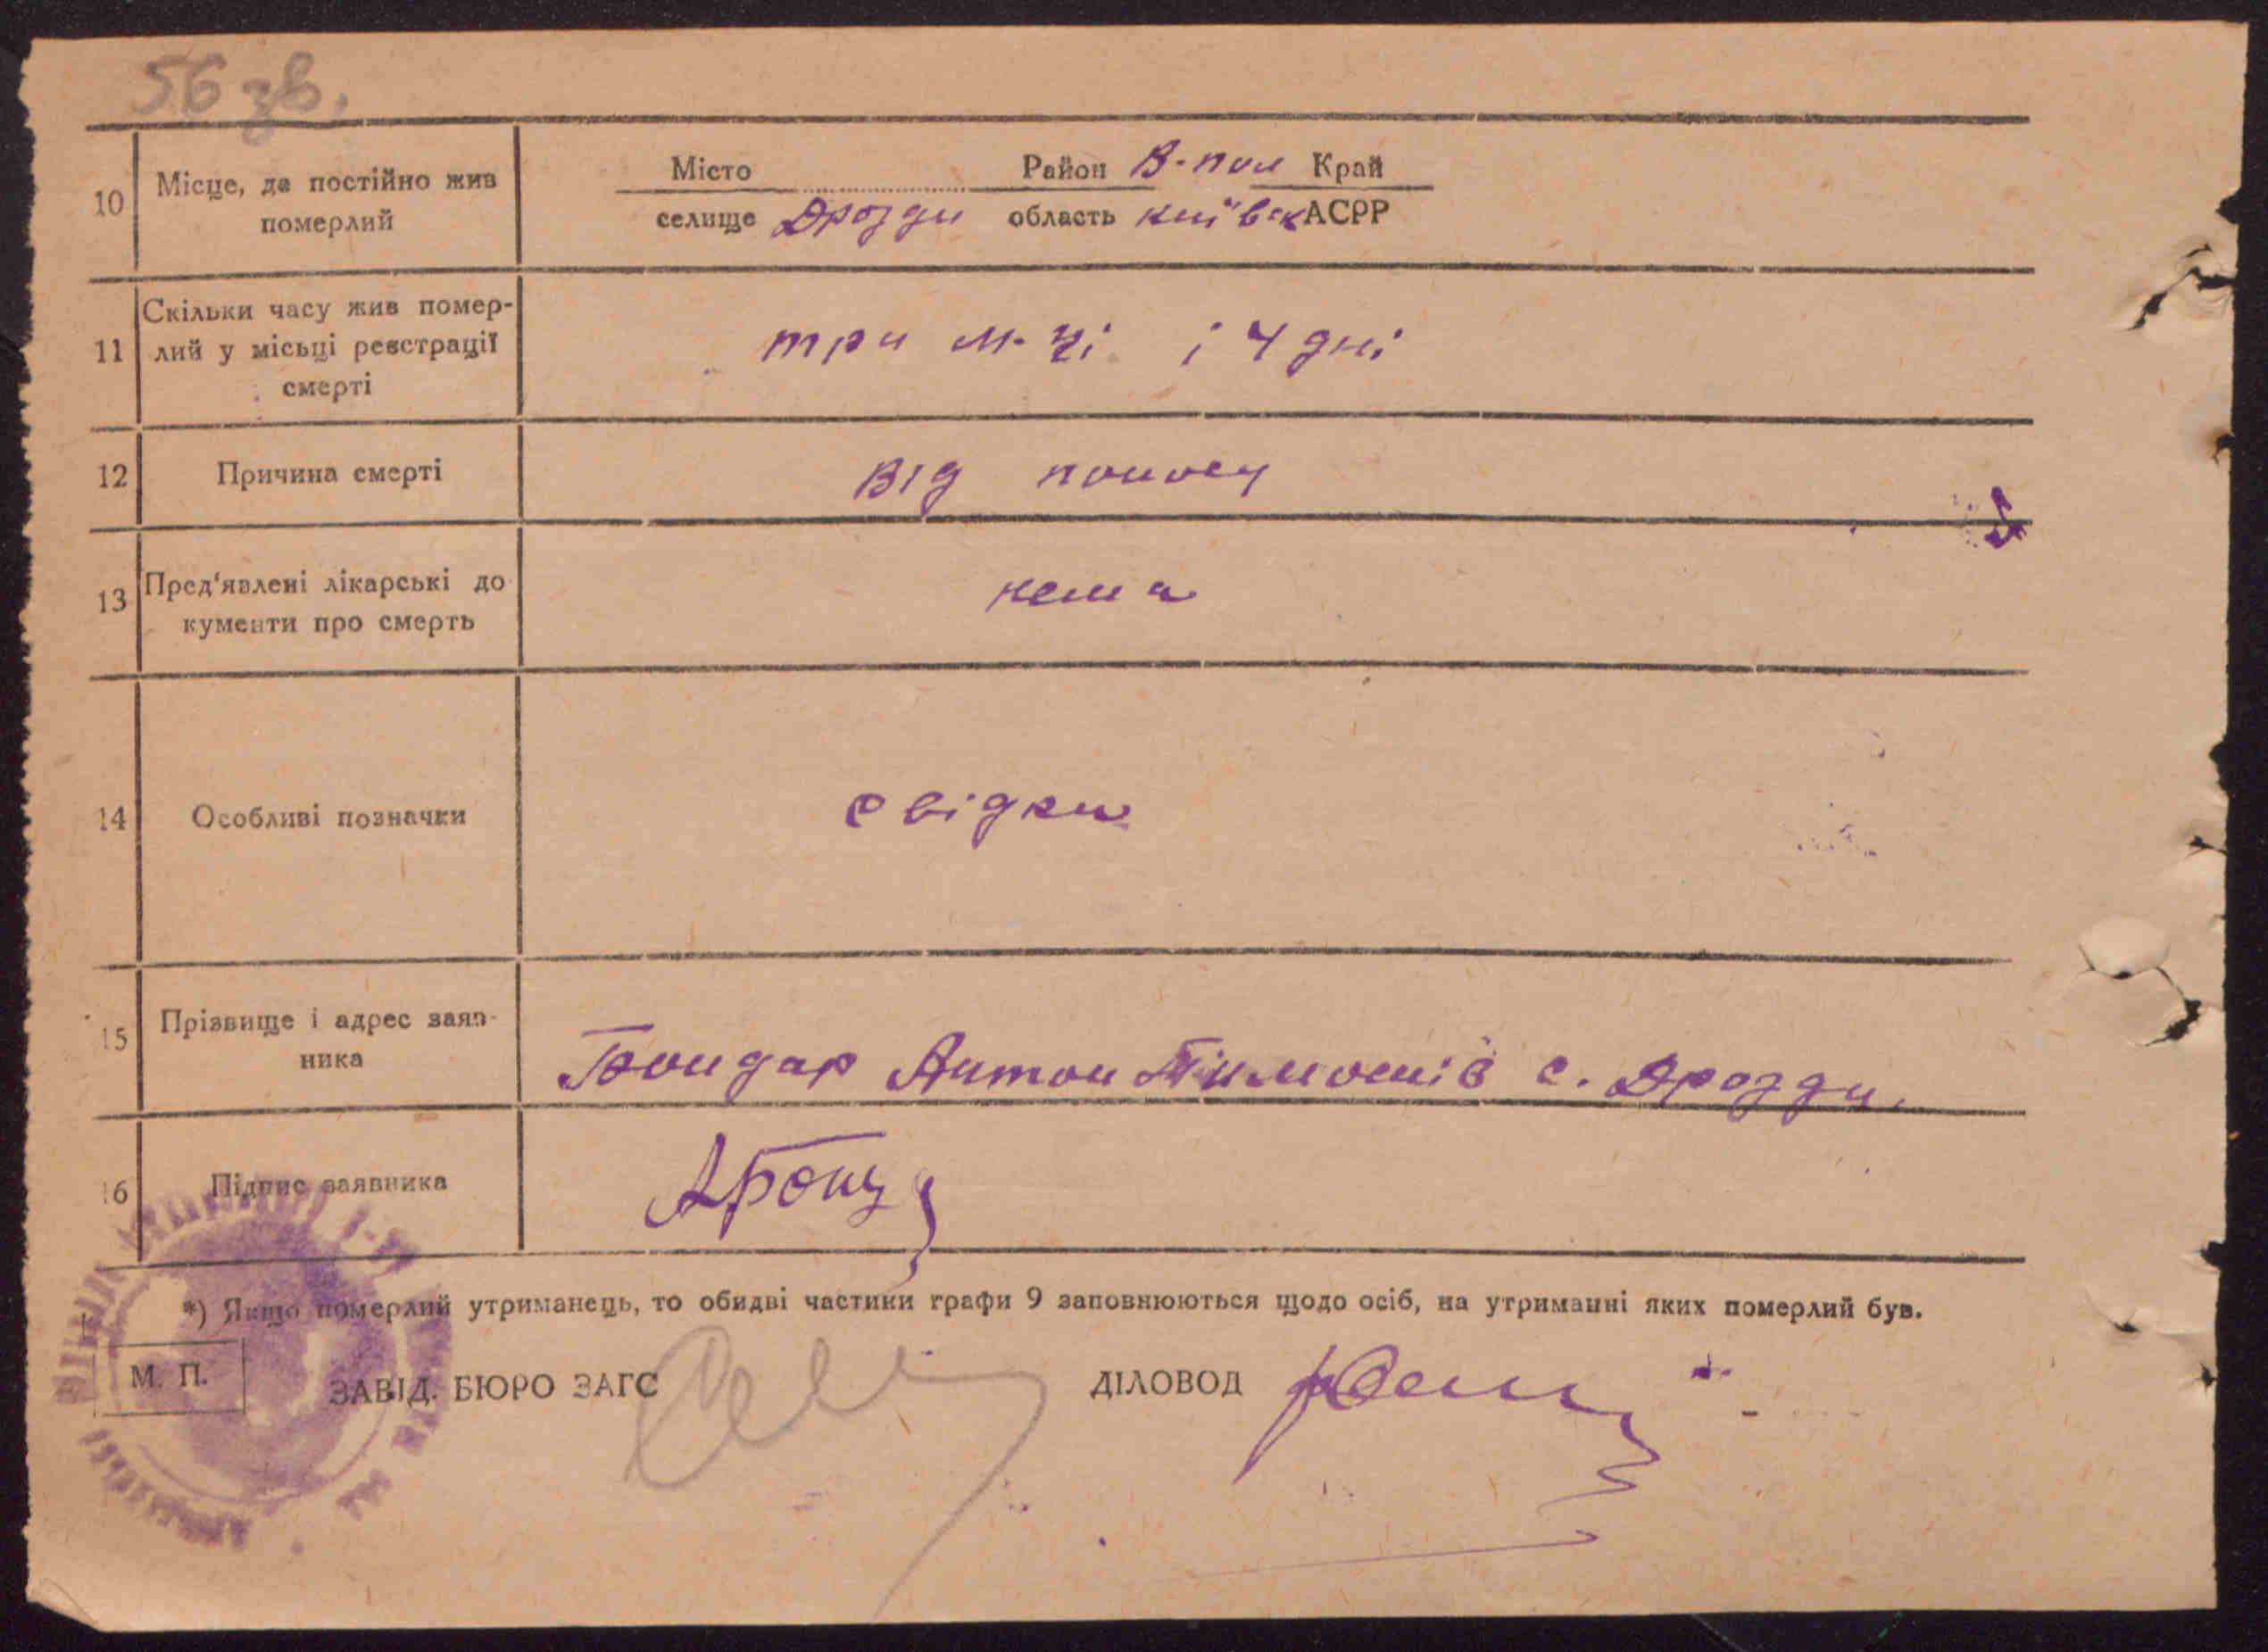 56 зв.
10 Місце, де постійно жив
померлий
Місто Район В-пол Край
селище Дрозди область київськ АСРР
11 Скільки часу жив помер-
лий у місьці реєстрації
смерті
три м-ці і 4 дні
12 Причина смерті
від поносу
13 Пред'явлені лікарські до
кументи про смерть
нема
14 Особливі позначки
свідки
15 Прізвище і адрес заяв-
ника
Бондар Антон Тимошів с. Дрозди.
16 Підпис заявника
АБонд
*) Якщо померлий утриманець, то обидві частини графи 9 заповнюються щодо осіб, на утриманні яких померлий був.
М. П.
ЗАВІД. БЮРО ЗАГС ДІЛОВОД